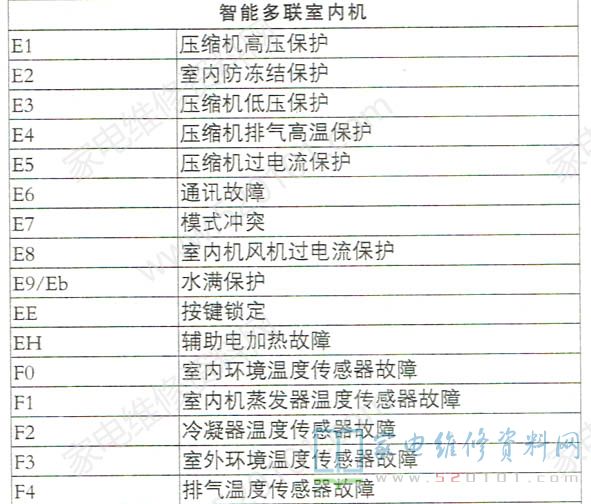 智能多联室内机
E1 压缩机高压保护
E2 室内防冻结保护
E3 压缩机低压保护
E4 压缩机排气高温保护
E5 压缩机过电流保护
E6 通讯故障
E7 模式冲突
E8 室内机风机过电流保护
E9/Eb 水满保护
EE 按键锁定
EH 辅助电加热故障
F0 室内环境温度传感器故障
F1 室内机蒸发器温度传感器故障
F2 冷凝器温度传感器故障
F3 室外环境温度传感器故障
F4 排气温度传感器故障
家电维修资料网
www.520101.com